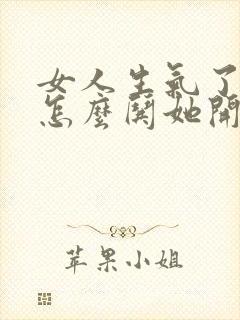 女人生氣了
怎麼鬨她開
苹果小姐